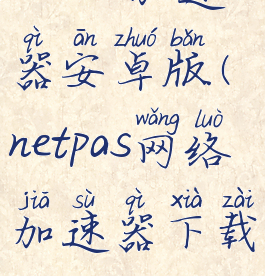 qì ān zhuó bǎn
器安卓版(
wǎng luò
netpas网络
jiā sù qì xià zài
加速器下载